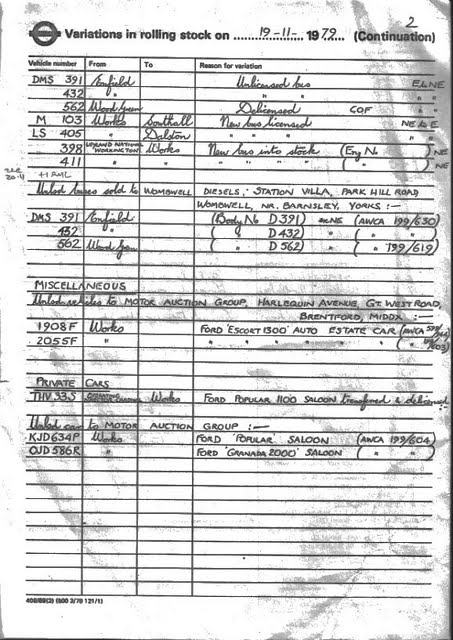 2
Variations in rolling stock on 19-11- 1979 (Continuation)
Vehicle number From To Reason for variation
DMS 391 Enfield Unlicensed bus E & NE
432 " " " "
562 Wood Green Delicensed COF " "
M 103 Works Southall New bus licensed NE & E
LS 405 " Dalston " " " " "
398 LEYLAND NATIONAL WORKINGTON Works New bus into stock (Eng No ) NE
411 " " " " " " ( " ) NE
20-11
Unlcd buses sold to WOMBWELL DIESELS, STATION VILLA, PARK HILL ROAD
WOMBWELL, NR. BARNSLEY, YORKS :—
DMS 391 Enfield (Body No D 391) (AWCA 199/630)
432 " ( " D 432) " ( " " )
562 Wood Grn ( " D 562) " ( " 199/619)
MISCELLANEOUS
Unlcd vehicles to MOTOR AUCTION GROUP, HARLEQUIN AVENUE, GT. WEST ROAD,
BRENTFORD, MIDDX :—
1908F Works FORD 'ESCORT 1300' AUTO ESTATE CAR (AWCA
2055F " " " " " " ( " 603)
PRIVATE CARS
THV 33S Works FORD POPULAR 1100 SALOON transferred & delicensed
Unlcd cars to MOTOR AUCTION GROUP :—
KJD 634P Works FORD 'POPULAR' SALOON (AWCA 199/604)
OJD 586R " FORD 'GRANADA 2000' SALOON ( " " )